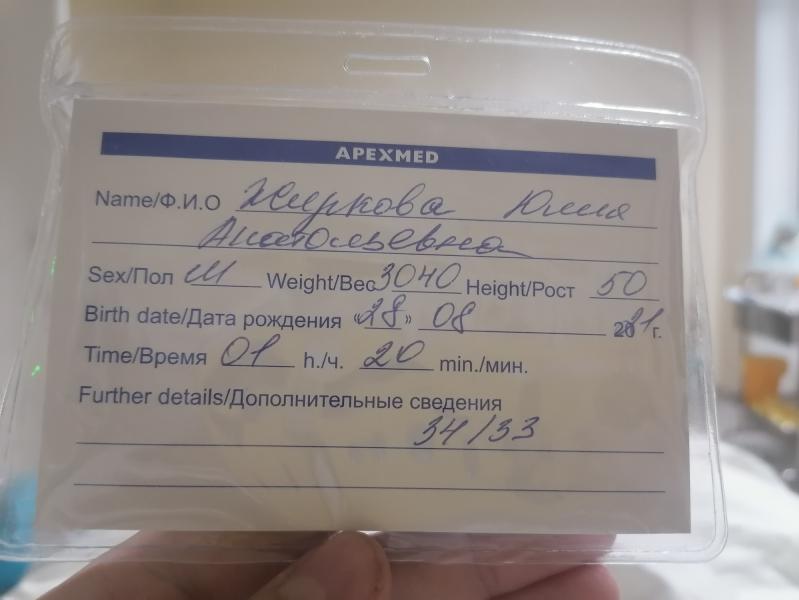 APEXMED
Name/Ф.И.О Жиркова Юлия
Анатольевна
Sex/Пол М Weight/Вес 3040 Height/Рост 50
Birth date/Дата рождения «28» 08 2021г.
Time/Время 01 h./ч. 20 min./мин.
Further details/Дополнительные сведения
34/33